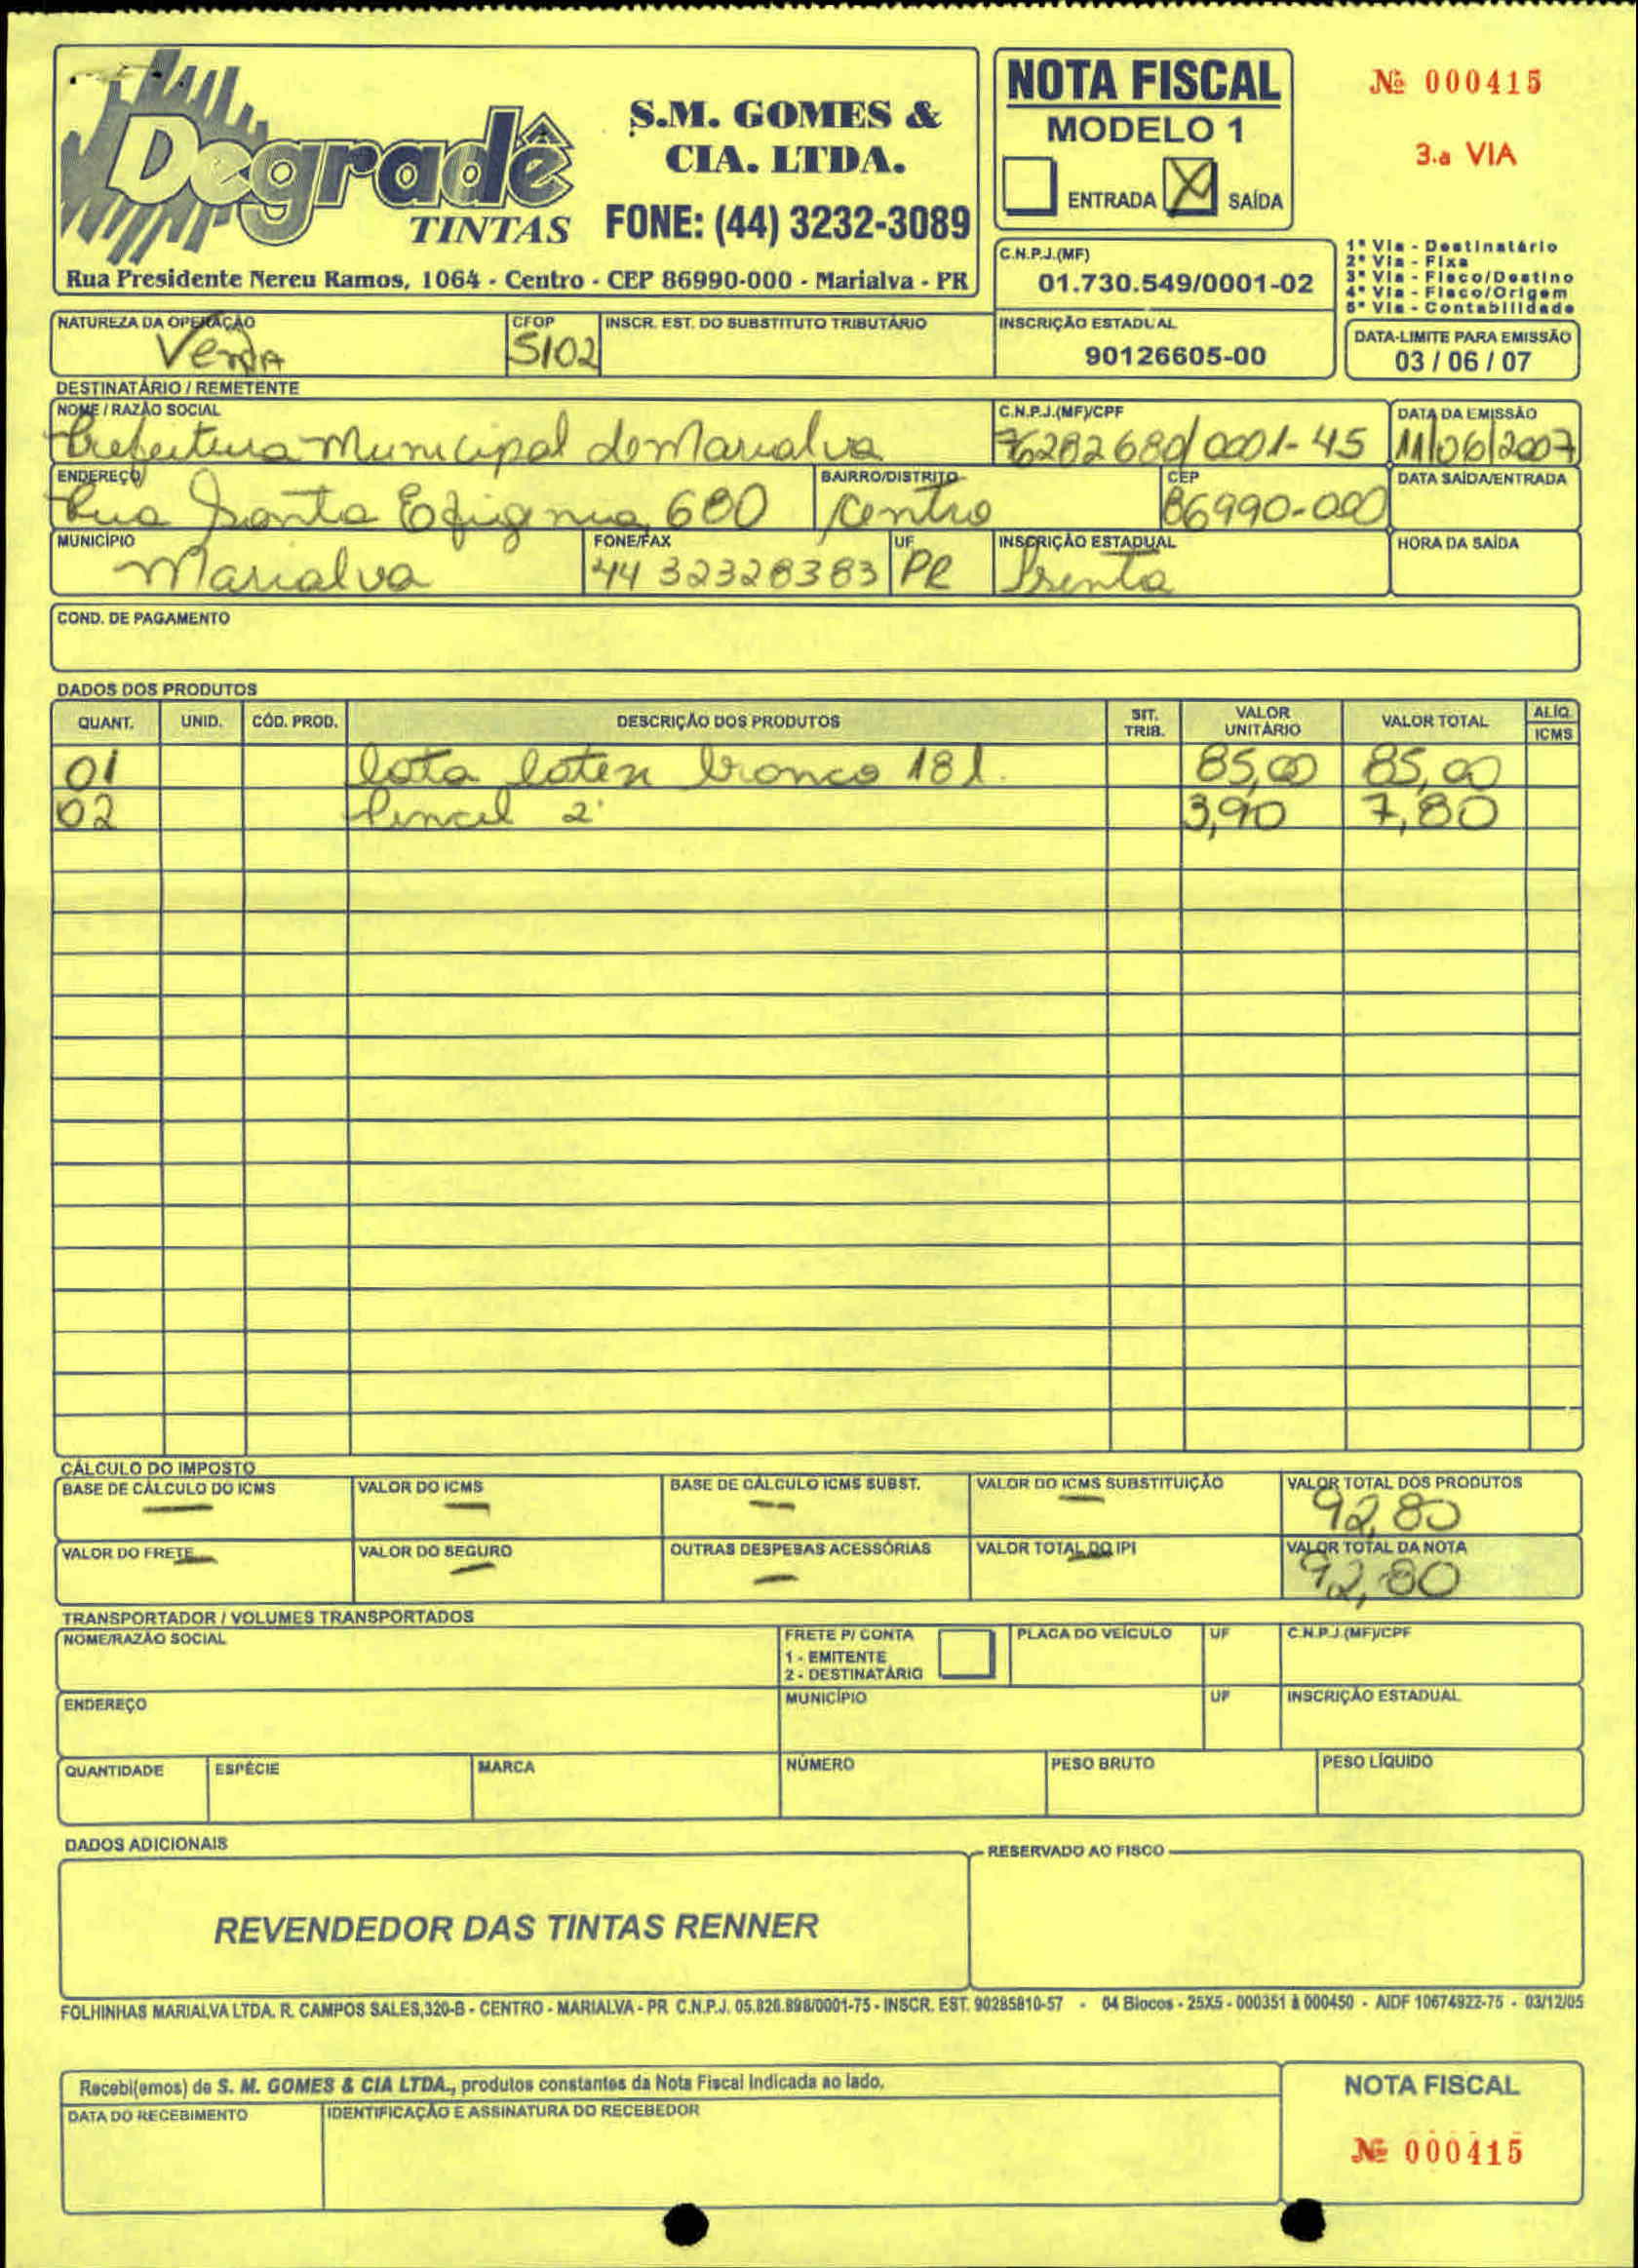 Degradê
TINTAS
S.M. GOMES &
CIA. LTDA.
FONE: (44) 3232-3089
Rua Presidente Nereu Ramos, 1064 - Centro - CEP 86990-000 - Marialva - PR
NOTA FISCAL
MODELO 1
ENTRADA X SAÍDA
Nº 000415
3.a VIA
C.N.P.J.(MF)
01.730.549/0001-02
1ª Via - Destinatário
2ª Via - Fixa
3ª Via - Fisco/Destino
4ª Via - Fisco/Origem
5ª Via - Contabilidade
NATUREZA DA OPERAÇÃO CFOP INSCR. EST. DO SUBSTITUTO TRIBUTÁRIO INSCRIÇÃO ESTADUAL DATA-LIMITE PARA EMISSÃO
Venda 5102 90126605-00 03 / 06 / 07
DESTINATÁRIO / REMETENTE
NOME / RAZÃO SOCIAL C.N.P.J.(MF)/CPF DATA DA EMISSÃO
Prefeitura Municipal de Marialva 76282680/0001-45 11/06/2007
ENDEREÇO BAIRRO/DISTRITO CEP DATA SAÍDA/ENTRADA
Rua Santa Efigenia, 680 Centro 86990-000
MUNICÍPIO FONE/FAX UF INSCRIÇÃO ESTADUAL HORA DA SAÍDA
Marialva 44 32328383 PR Isenta
COND. DE PAGAMENTO
DADOS DOS PRODUTOS
QUANT. UNID. CÓD. PROD. DESCRIÇÃO DOS PRODUTOS SIT. TRIB. VALOR UNITÁRIO VALOR TOTAL ALÍQ. ICMS
01 lata latex branco 18 l. 85,00 85,00
02 Pincel 2" 3,90 7,80
CÁLCULO DO IMPOSTO
BASE DE CÁLCULO DO ICMS VALOR DO ICMS BASE DE CÁLCULO ICMS SUBST. VALOR DO ICMS SUBSTITUIÇÃO VALOR TOTAL DOS PRODUTOS
— — — — 92,80
VALOR DO FRETE VALOR DO SEGURO OUTRAS DESPESAS ACESSÓRIAS VALOR TOTAL DO IPI VALOR TOTAL DA NOTA
— — — — 92,80
TRANSPORTADOR / VOLUMES TRANSPORTADOS
NOME/RAZÃO SOCIAL FRETE P/ CONTA PLACA DO VEÍCULO UF C.N.P.J.(MF)/CPF
1 - EMITENTE
2 - DESTINATÁRIO
ENDEREÇO MUNICÍPIO UF INSCRIÇÃO ESTADUAL
QUANTIDADE ESPÉCIE MARCA NÚMERO PESO BRUTO PESO LÍQUIDO
DADOS ADICIONAIS RESERVADO AO FISCO
REVENDEDOR DAS TINTAS RENNER
FOLHINHAS MARIALVA LTDA. R. CAMPOS SALES, 320-B - CENTRO - MARIALVA - PR C.N.P.J. 05.826.898/0001-75 - INSCR. EST. 90285810-57 - 04 Blocos - 25X5 - 000351 à 000450 - AIDF 10674922-75 - 03/12/05
Recebi(emos) de S. M. GOMES & CIA LTDA., produtos constantes da Nota Fiscal indicada ao lado.
DATA DO RECEBIMENTO IDENTIFICAÇÃO E ASSINATURA DO RECEBEDOR
NOTA FISCAL
Nº 000415